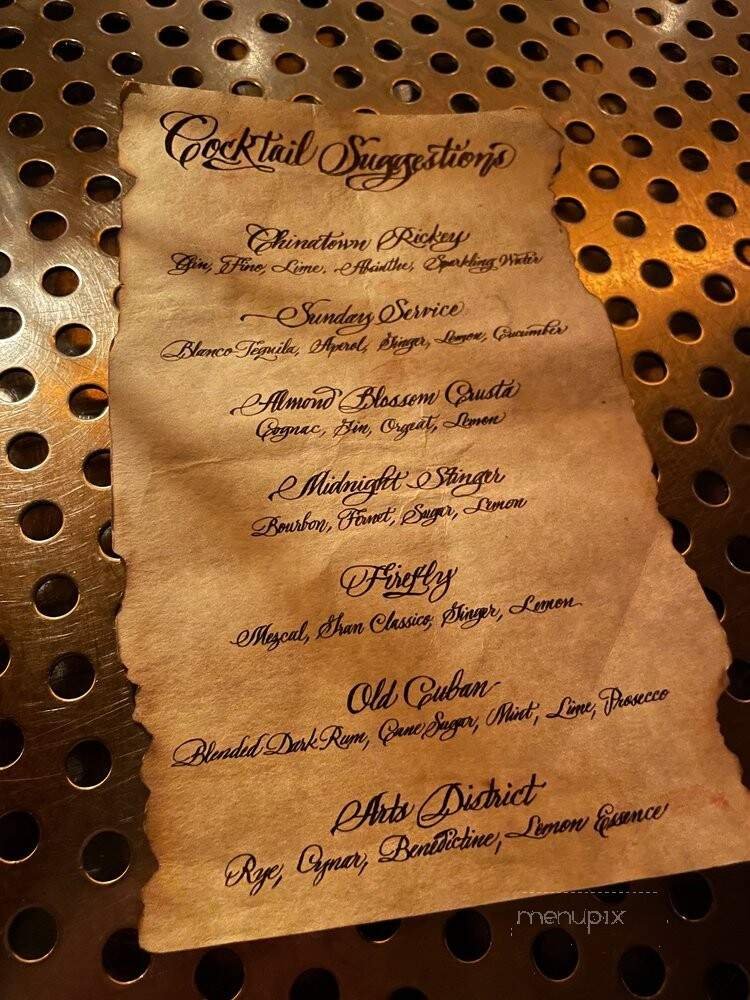 Cocktail Suggestions
Chinatown Rickey
Gin, Fino, Lime, Absinthe, Sparkling Water
Sunday Service
Blanco Tequila, Aperol, Ginger, Lemon, Cucumber
Almond Blossom Crusta
Cognac, Gin, Orgeat, Lemon
Midnight Stinger
Bourbon, Fernet, Sugar, Lemon
Firefly
Mezcal, Gran Classico, Ginger, Lemon
Old Cuban
Blended Dark Rum, Cane Sugar, Mint, Lime, Prosecco
Arts District
Rye, Cynar, Benedictine, Lemon Essence
menupix